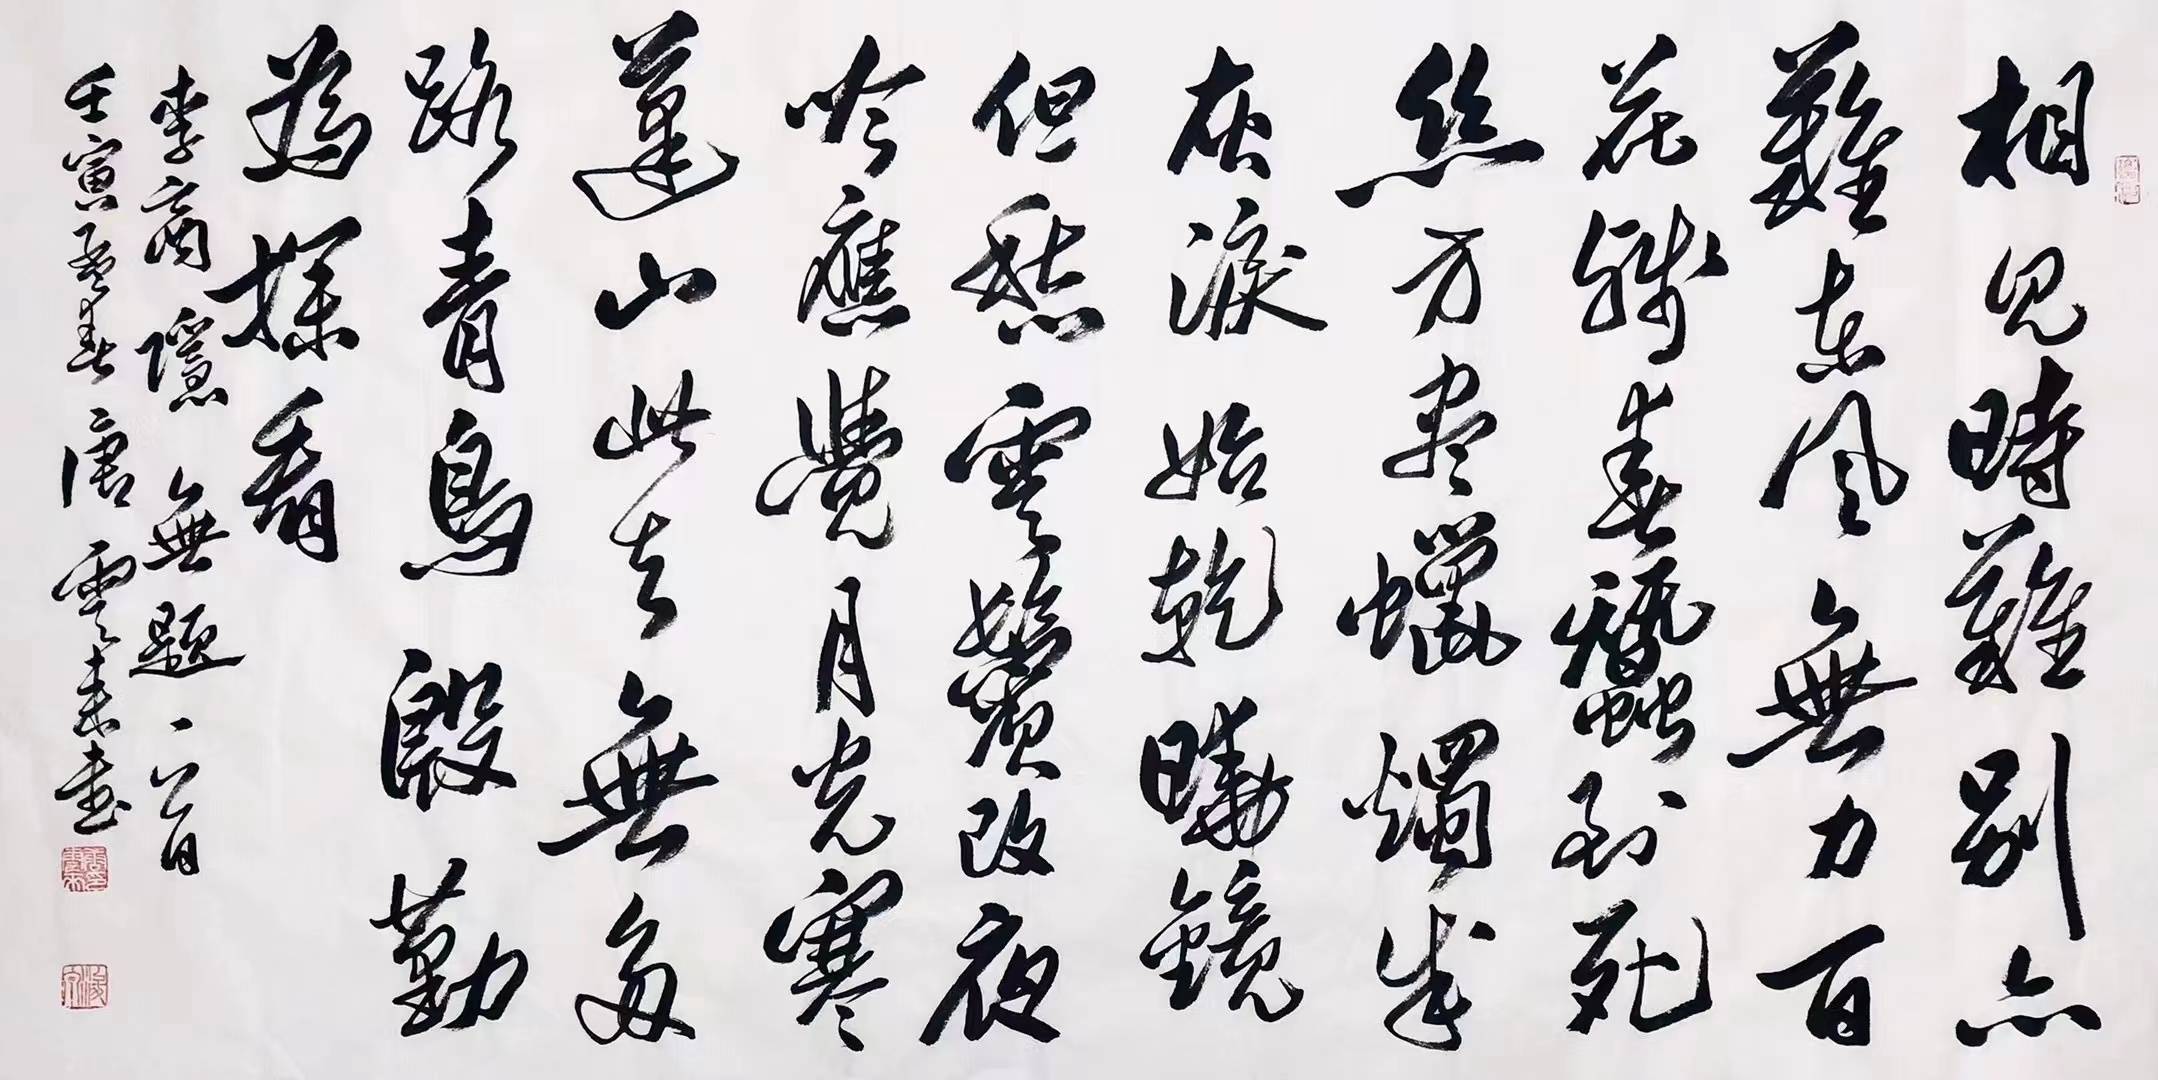 相見時難別亦
難東風無力百
花殘春蠶到死
絲方盡蠟燭成
灰淚始乾曉鏡
但愁雲鬢改夜
吟應覺月光寒
蓬山此去無多
路青鳥殷勤
為探看
李商隱無題一首
壬寅孟春唐雲來書